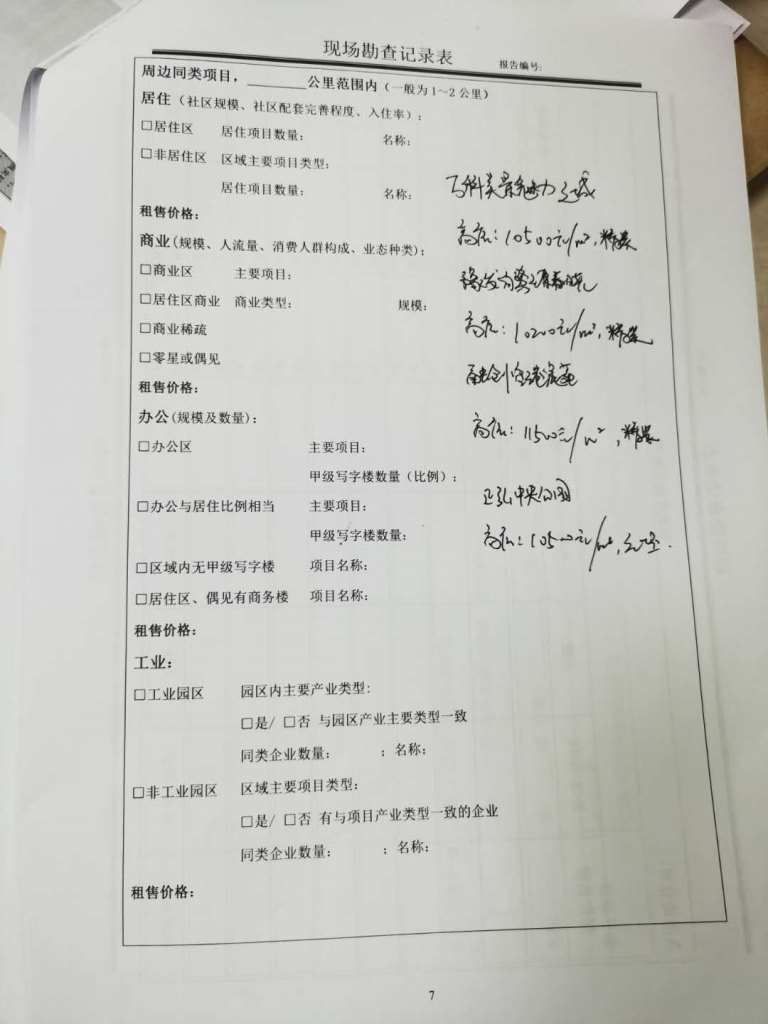 现场勘查记录表
报告编号:
周边同类项目，________公里范围内（一般为1～2公里）
居住（社区规模、社区配套完善程度、入住率）；
□居住区 居住项目数量： 名称：
□非居住区 区域主要项目类型；
居住项目数量： 名称：
租售价格：
高层：10500元/m²，精装
商业(规模、人流量、消费人群构成、业态种类)；
□商业区 主要项目：
□居住区商业 商业类型： 规模：
□商业稀疏
高层：10200元/m²，精装
□零星或偶见
租售价格：
办公(规模及数量)：
高层：11500元/m²，精装
□办公区 主要项目：
甲级写字楼数量（比例）：
正弘中央公园
□办公与居住比例相当 主要项目：
甲级写字楼数量：
高层：10500元/m²，
□区域内无甲级写字楼 项目名称：
□居住区、偶见有商务楼 项目名称：
租售价格：
工业：
□工业园区 园区内主要产业类型:
□是/ □否 与园区产业主要类型一致
同类企业数量： ；名称：
□非工业园区 区域主要项目类型：
□是/ □否 有与项目产业类型一致的企业
同类企业数量： ；名称：
租售价格：
7